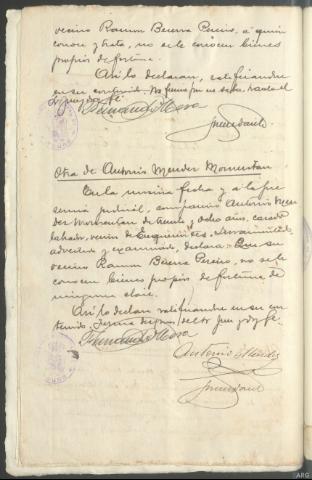 vecino Ramon Baena Pereiro, á quien
conoce y trata, no se le conocen bienes
propios de fortuna.
Asi lo declaran, ratificandose
en su contenido. No firma por no saber, hacelo el
doy fé
Fernando
Otra de Antonio Mendez Momentan
En la misma fecha y á la pre
sencia judicial, compareció Antonio Men
dez Momentan de treinta y ocho años, casado
labrador, vecino de
advertido y examinado, declara: Que su
vecino Ramon Baena Pereiro, no se le
conocen bienes propios de fortuna de
ninguna clase.
Asi lo declara ratificandose en su con
tenido, firma despues del Sr Juez y doy fé.
Fernando
Antonio Mendez
ARG